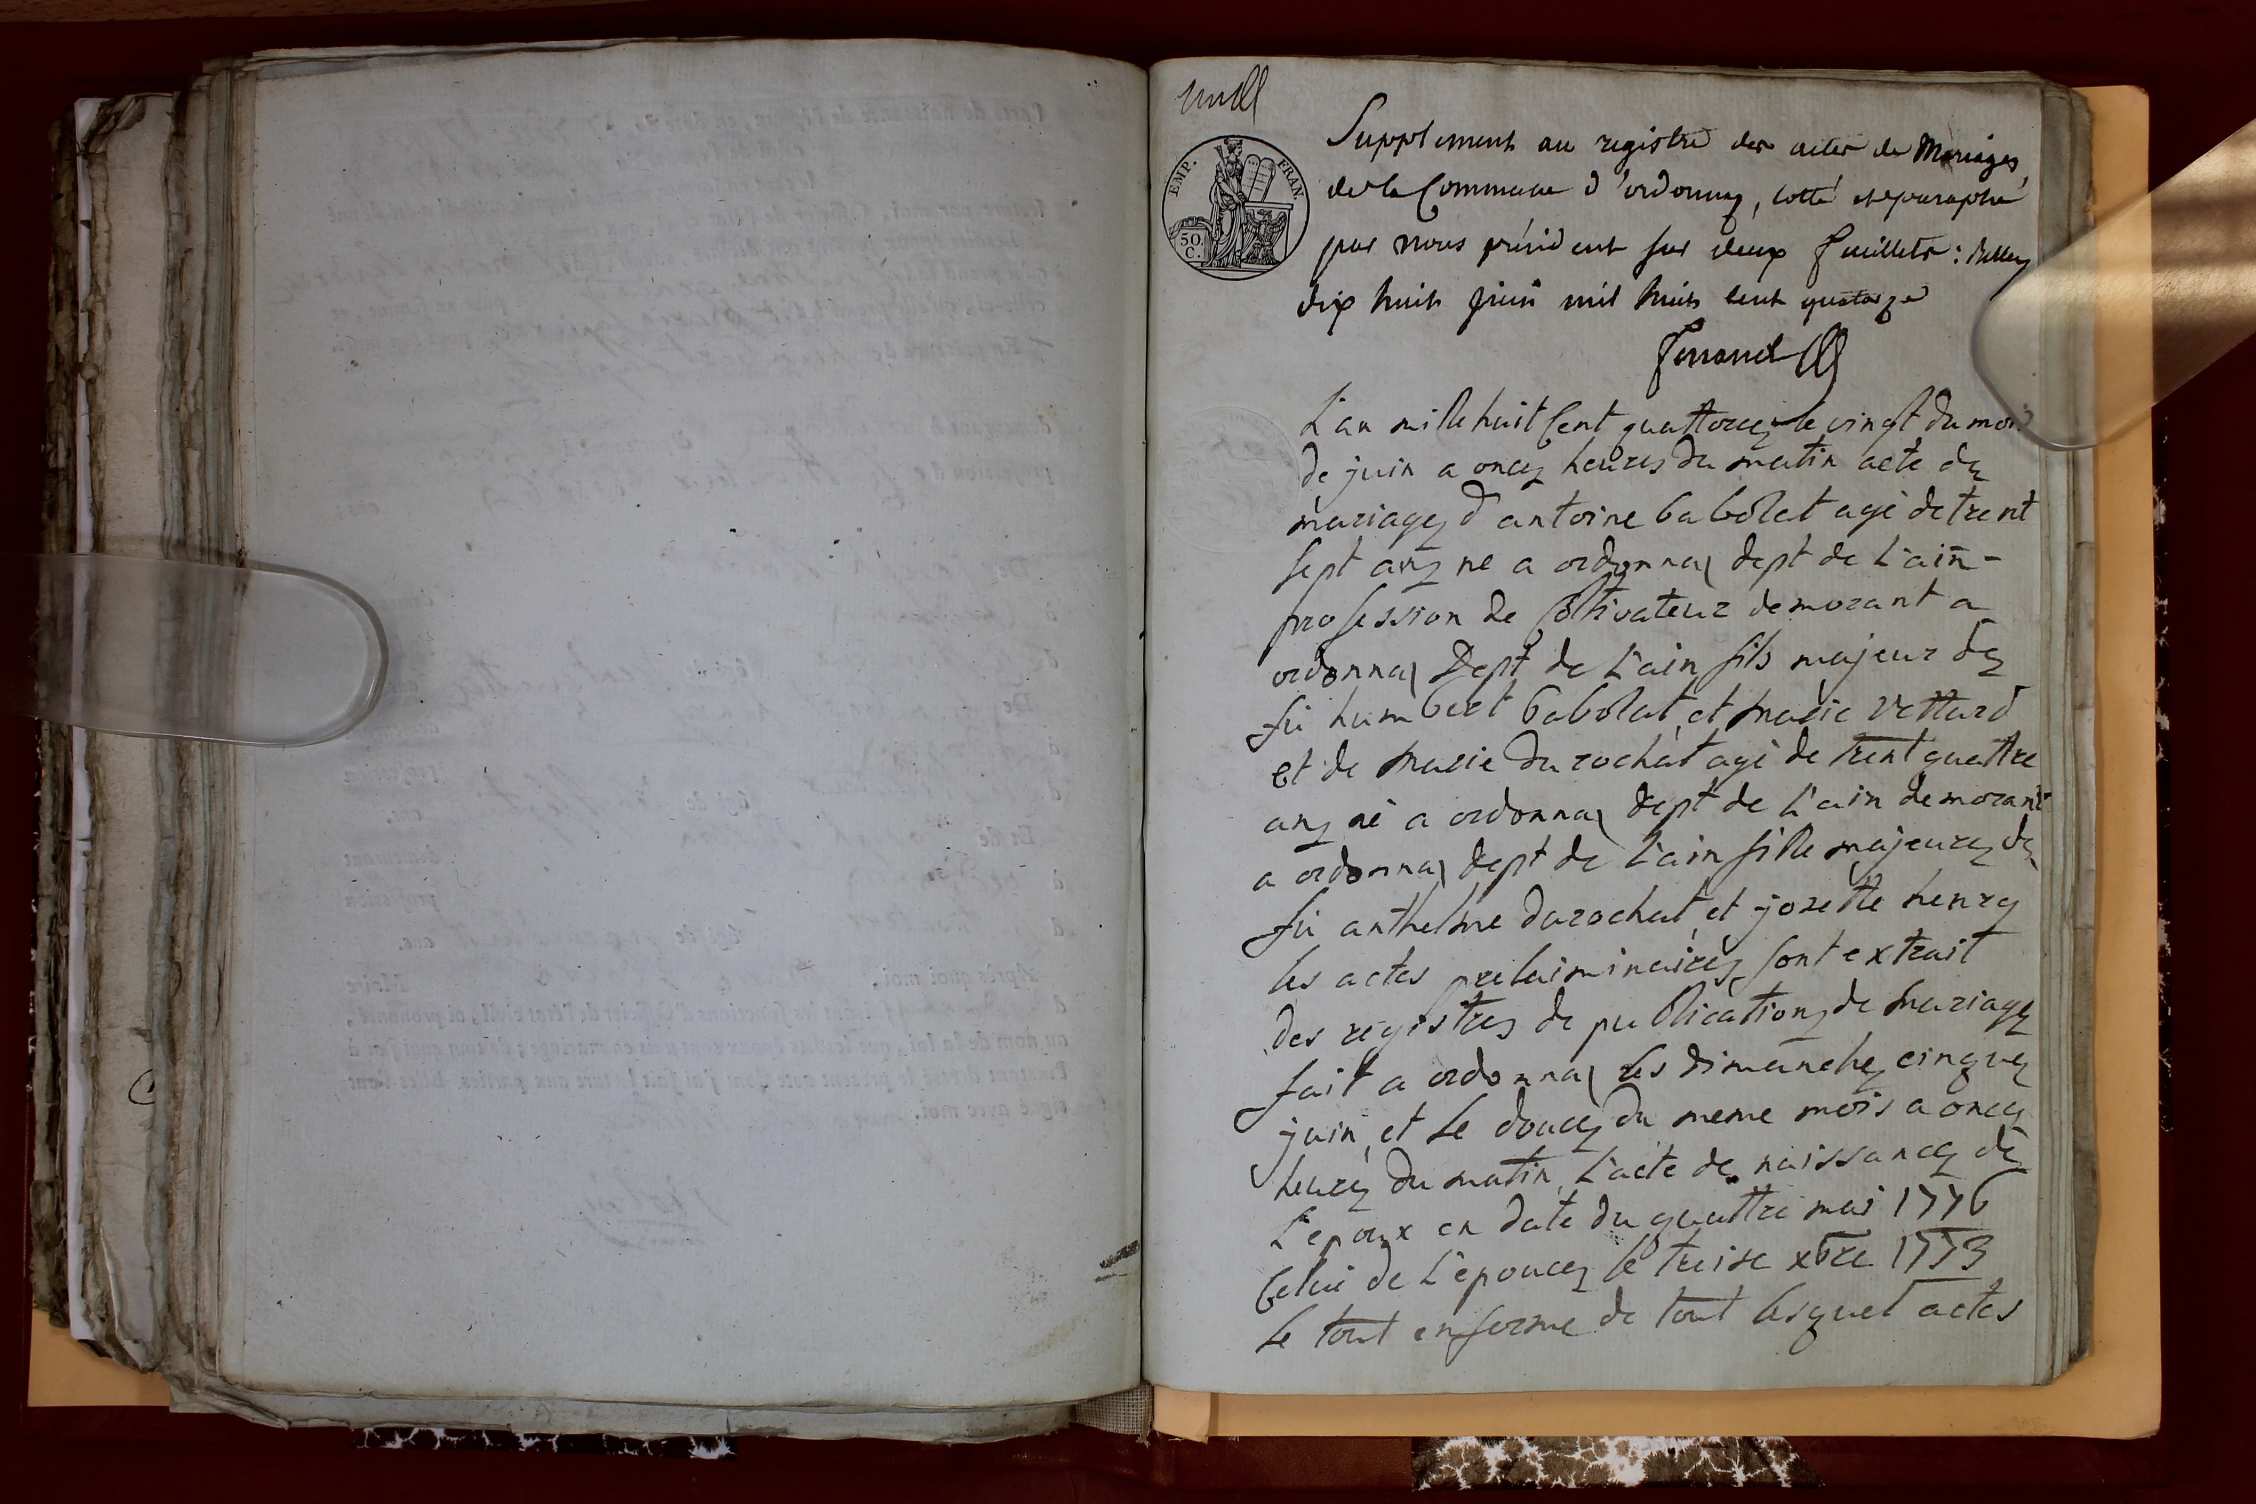 EMP. FRAN.
50. C.
Supplement au registre des actes de Mariages
de la Commune d'ordonnaz, cotté et paraphé
par nous président sur deux feuillets : Belley
dix huit juin mil huit cent quatorze
L'an mille huit Cent quattorcez le vingt du mois
de juin a oncez heures du matin acte de
mariagez d'antoine babolat agé de trent
sept anz ne a ordonnaz dept de L'ain -
profession de Coltivateur demorant a
ordonnaz Dept de L'ain fils majeur de
fü humbert babolat et marie vettard
et de marie durochat agé de trent quattre
anz né a ordonnaz dept de L'ain demorant
a ordonnaz dept de L'ain fille majeurez de
fü anthelme durochat et josette henry
les actes prelaiminairez sont extrait
des registrez de publicationz de mariagez
fait a ordonnaz les dimanchez cinquez
juin et le doucez du meme mois a oncez
heurez du matin L'acte de naissancez de
L'epoux en date du quattre mai 1776
Celui de L'époucez le treise xbre 1773
Le tout en forme de tout lesquel actes